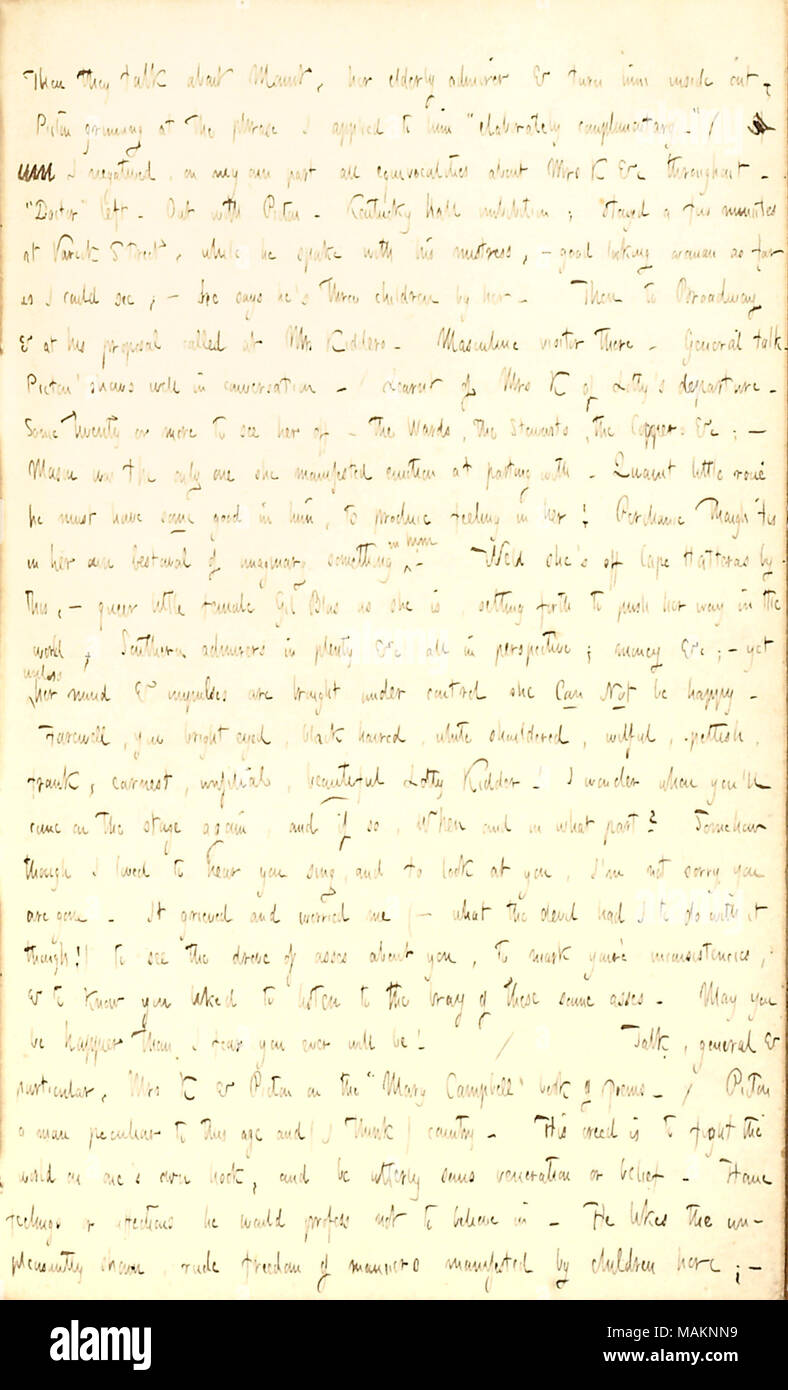 Then they talk about Mount, her elderly admirer & turn him inside out,
Picton grinning at the phrase I applied to him "elaborately complimentary." /
I negatived, on my own part all equivocalities about Mrs K &c throughout.
"Doctor" left. Out with Picton. Kentucky hall imbibition; stayed a few minutes
at Varick Street, while he spake with his mistress, — good looking woman as far
as I could see; — He says he's three children by her. Then to Broadway
& at his proposal called at Mrs. Kidders. Masculine visitor there. General talk.
Picton shows well in conversation. / Learnt of Mrs K of Lotty's departure.
Some twenty or more to see her off — the Wards, the Stewarts, the &c; —
Mason was the only one she manifested emotion at parting with. Quaint little roué
he must have some good in him, to produce feeling in her! Perchance though 'tis
in her own bestowal of imaginary something in him. — Well she's off Cape Hatteras by
this, — queer little female Gil Blas as she is, setting forth to push her way in the
world; Southern admirers in plenty &c all in perspective; money &c; — yet
unless her mind & impulses are brought under control she Can Not be happy.
Farewell, you bright eyed, black haired, white shouldered, wilful, pettish,
frank, earnest, unfilial, beautiful Lotty Kidder! I wonder when you'll
come on the stage again, and if so, When and in what part? Somehow
though I loved to hear you sing, and to look at you, I'm not sorry you
are gone. It grieved and worried me (— what the devil had I to do with it
though!) to see the drove of asses about you, to mark you're inconsistencies,
& to know you liked to listen to the bray of these same asses. May you
be happier than I fear you ever will be! / Talk, general &
particular, Mrs K & Picton on the "Mary Campbell" book of poems. / Picton
a man peculiar to this age and (I think) country. His creed is to fight the
world on one's own hook, and be utterly sans veneration or belief. Home
feelings or affections he would profess not to believe in. He likes the un-
pleasantly shown, rude freedom of manners manifested by children here; —
alamy
Image ID: MAKNN9
www.alamy.com